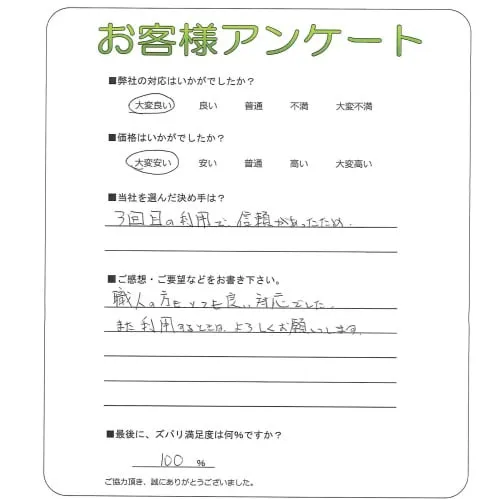 お客様アンケート
■弊社の対応はいかがでしたか？
大変良い 良い 普通 不満 大変不満
■価格はいかがでしたか？
大変安い 安い 普通 高い 大変高い
■当社を選んだ決め手は？
3回目の利用で、信頼があったため。
■ご感想・ご要望などをお書き下さい。
職人の方もとても良い対応でした。
また利用するときは、よろしくお願いします。
■最後に、ズバリ満足度は何％ですか？
100 ％
ご協力頂き、誠にありがとうございました。